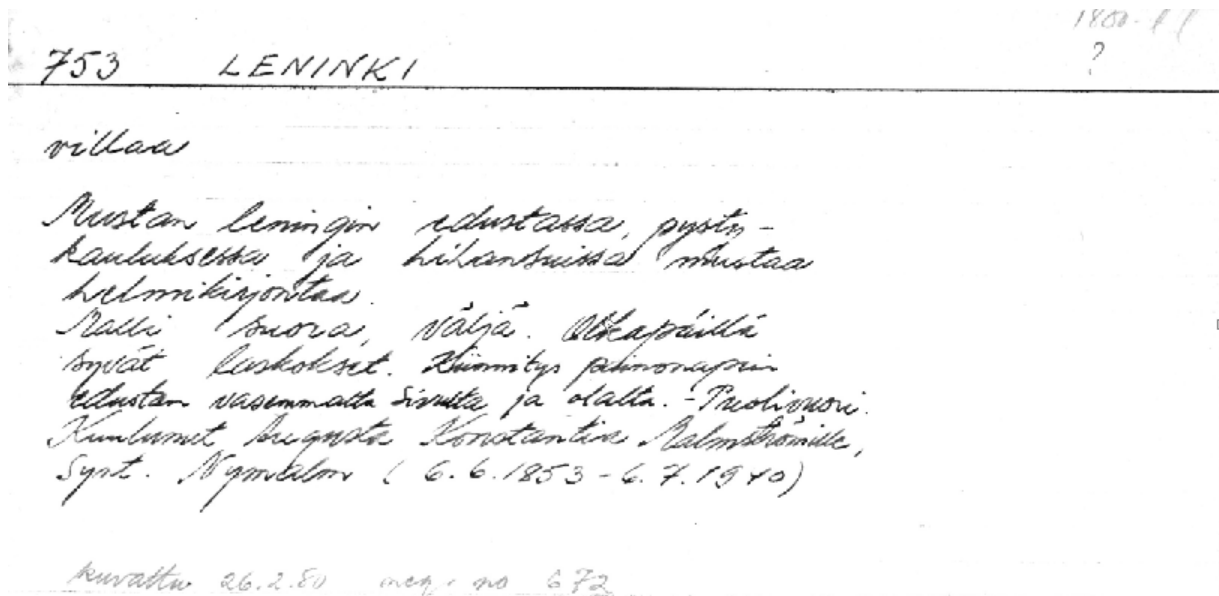 1800-l l
?
753 LENINKI
villaa
Mustan leningin edustassa, pysty-
kauluksessa ja hihansuissa mustaa
helmikirjontaa.
Malli suora, väljä. Olkapäillä
syvät laskokset. Kiinnitys painonapein
edustan vasemmalta sivulta ja olalta. - Puolivuori.
Kuulunut Augusta Konstantia Malmströmille,
Synt. Nymalm (6.6.1853-6.7.1940)
kuvattu 26.2.80 neg. no 672